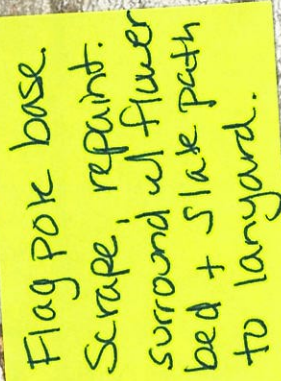 Flag pole base.
Scrape, repaint.
surround w/ flower
bed + slate path
to lanyard.